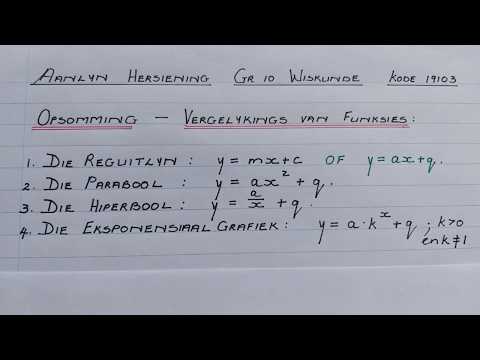 AANLYN HERSIENING GR 10 WISKUNDE KODE 19103
OPSOMMING – VERGELYKINGS VAN FUNKSIES:
1. DIE REGUITLYN: y = mx + c OF y = ax + q.
2. DIE PARABOOL: y = ax² + q.
3. DIE HIPERBOOL: y = a/x + q.
4. DIE EKSPONENSIAAL GRAFIEK: y = a·kˣ + q ; k>0
en k≠1